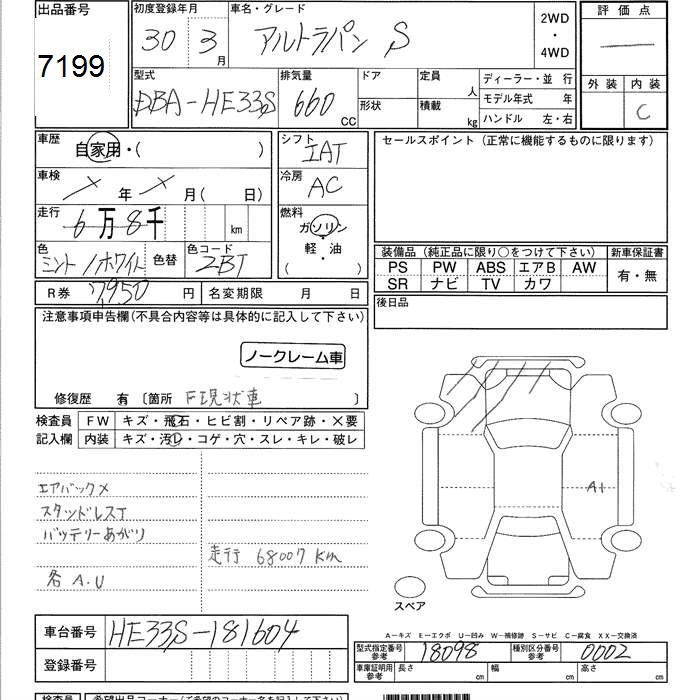 出品番号
7199
初度登録年月
30 3 月
車名・グレード
アルトラパン S
2WD
・
4WD
評価点
外装 内装
C
型式
DBA-HE33S
排気量
660 CC
ドア
形状
定員 人
積載 kg
ディーラー・並 行
モデル年式 年
ハンドル 左・右
車歴
自家用・( )
車検
× 年 × 月( 日)
走行
6万8千 km
色
ミント/ホワイト
色替
色コード
ZBT
シフト
IAT
冷房
AC
燃料
ガソリン
・
軽・油
( ・ )
セールスポイント (正常に機能するものに限ります)
装備品 (純正品に限り○をつけて下さい)
PS PW ABS エアB AW
SR ナビ TV カワ
新車保証書
有・無
後日品
R券 7,950 円
名変期限 月 日
注意事項申告欄(不具合内容等は具体的に記入して下さい)
ノークレーム車
修復歴 有 〔箇所 F現状車 〕
検査員
記入欄
FW キズ・飛石・ヒビ割・リペア跡・×要
内装 キズ・汚レ・コゲ・穴・スレ・キレ・破レ
エアバック×
スタッドレスT
バッテリーあがり
各A.U
走行 68007 Km
A1
スペア
車台番号 HE33S-181604
登録番号
A-キズ E-エクボ U-凹み W-補修跡 S-サビ C-腐食 XX-交換済
型式指定番号
参考
18098
種別区分番号
参考
0002
車庫証明用
参考
長さ cm
幅 cm
高さ cm
検査員
希望出品コーナー(ご希望のコーナー名をご記入下さい)